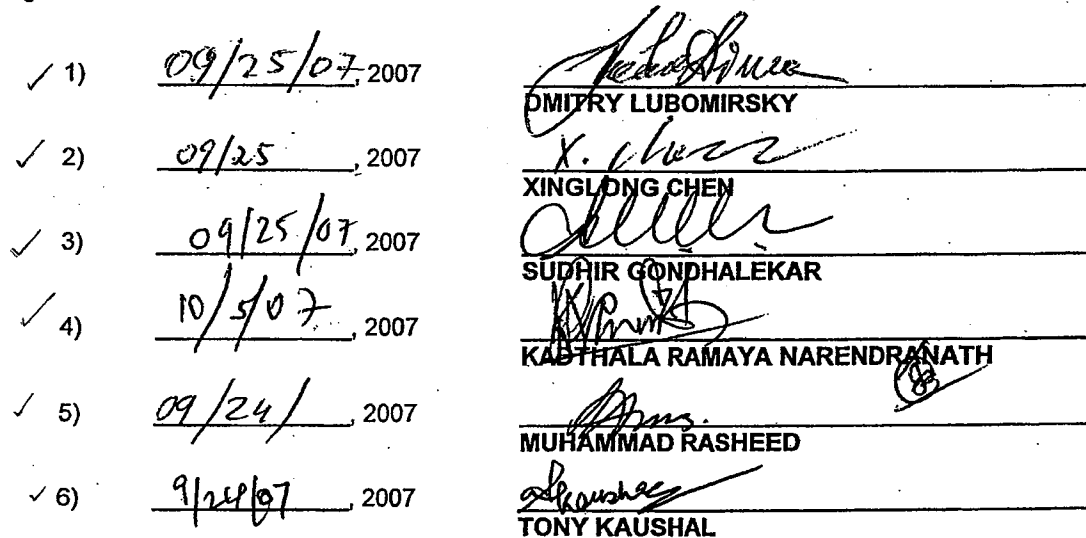 ✓ 1) 09/25/07, 2007
DMITRY LUBOMIRSKY
✓ 2) 09/25, 2007 X. Chen
XINGLONG CHEN
✓ 3) 09/25/07, 2007
SUDHIR GONDHALEKAR
✓ 4) 10/5/07, 2007
KADTHALA RAMAYA NARENDRANATH
✓ 5) 09/24/, 2007
MUHAMMAD RASHEED
✓ 6) 9/24/07, 2007 Kaushal
TONY KAUSHAL